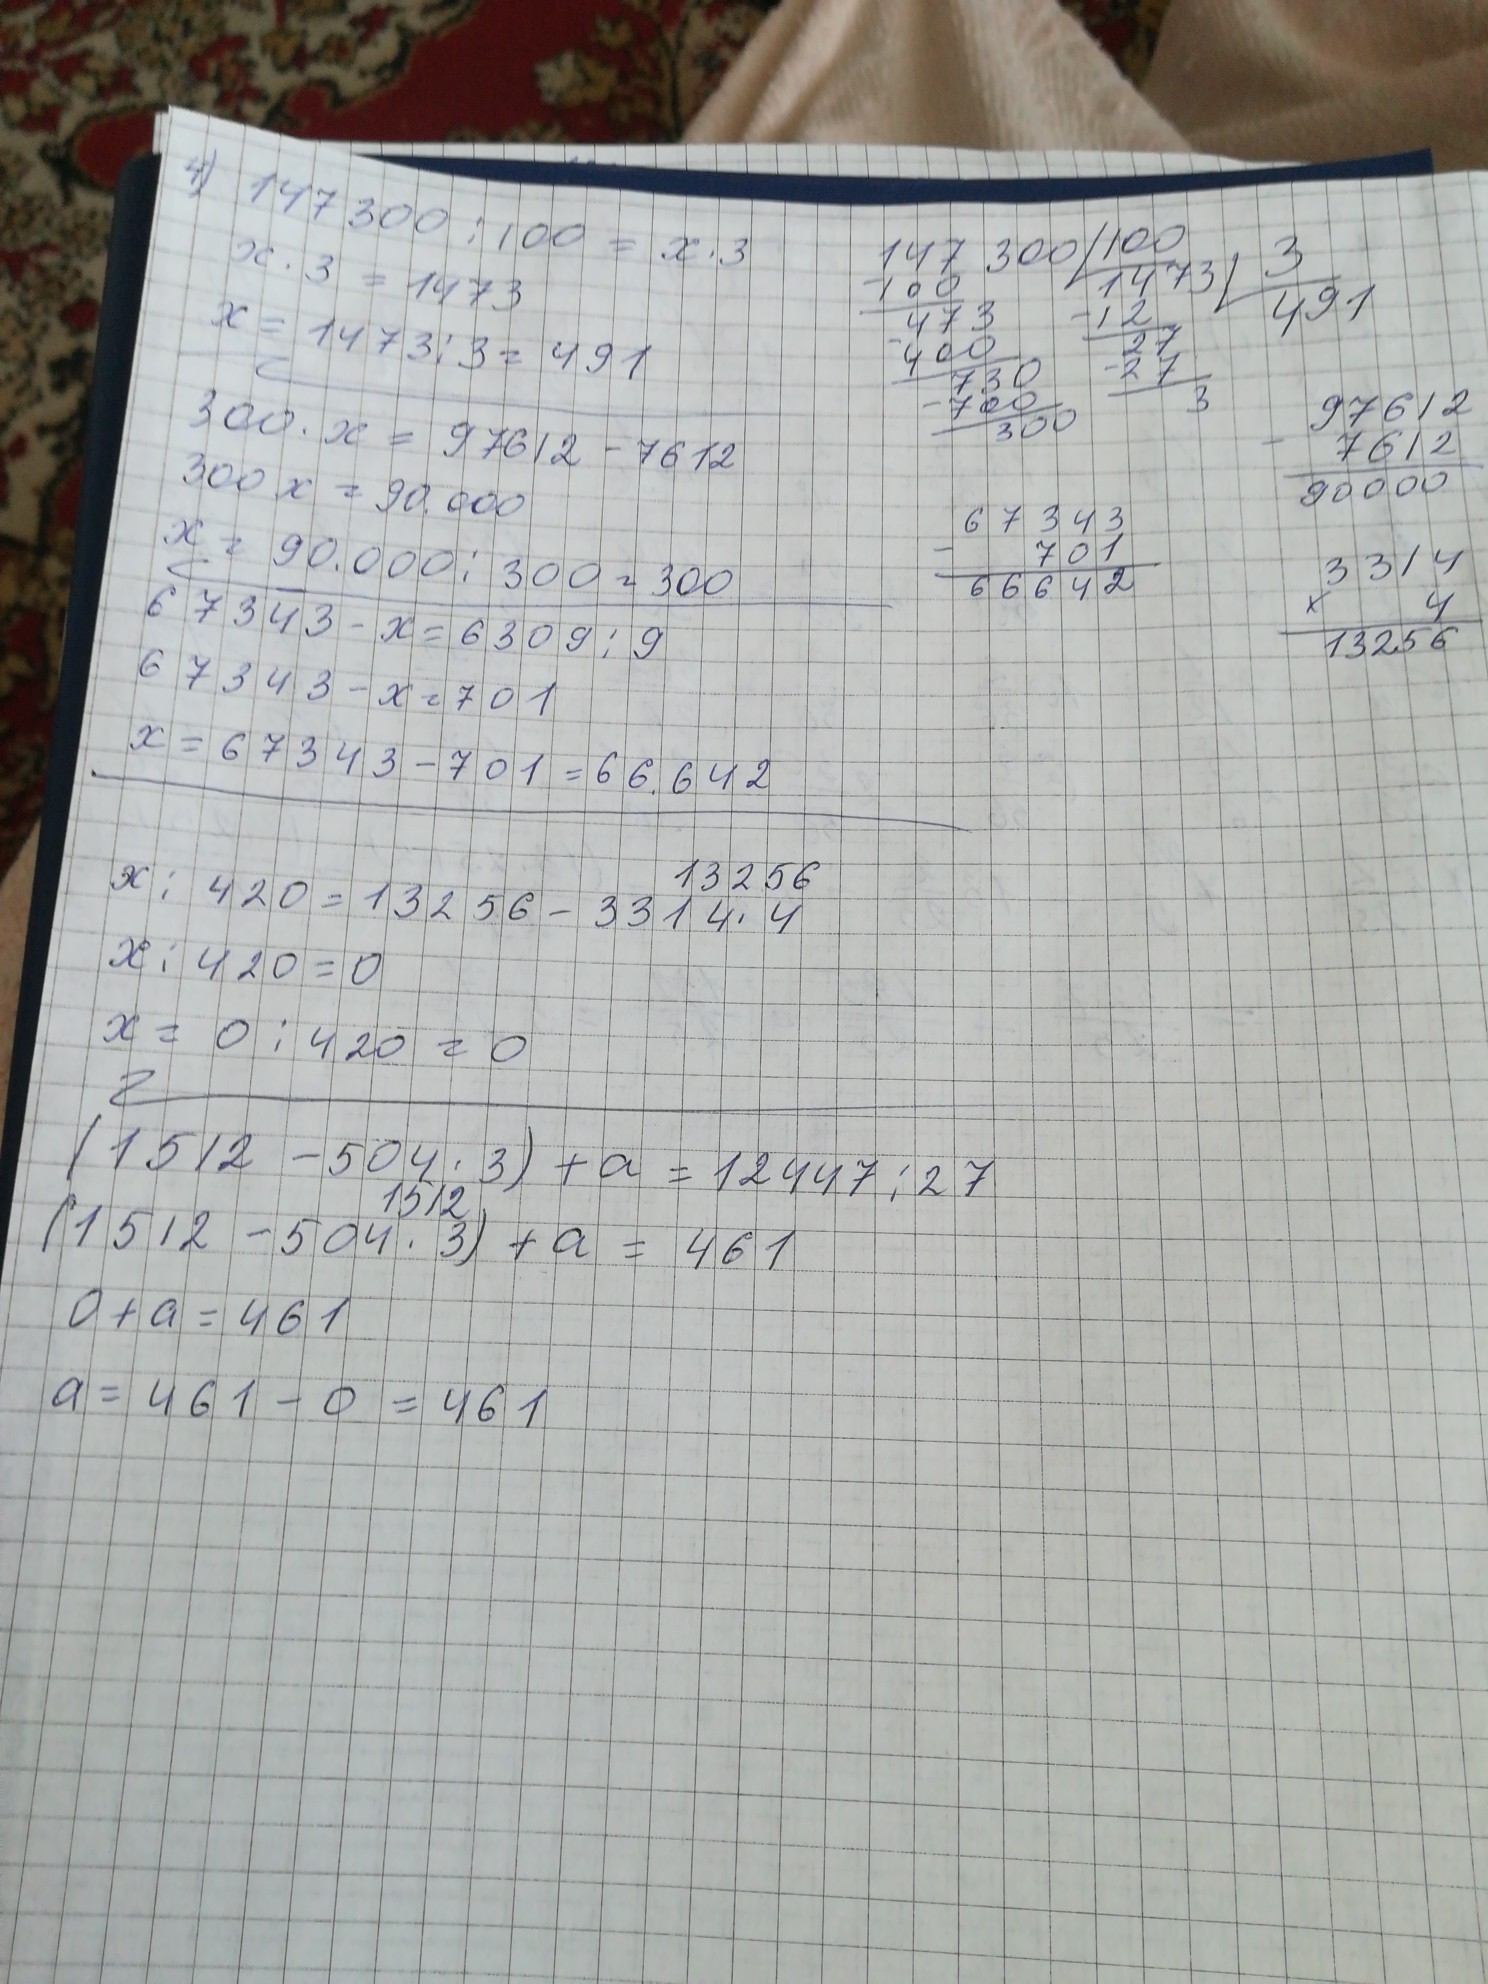 4) 147300:100=x·3
x·3=1473
x=1473:3=491
300·x=97612-7612
300x=90.000
x=90.000:300=300
67343-x=6309:9
67343-x=701
x=67343-701=66.642
13256
x:420=13256-3314·4
x:420=0
x=0:420=0
(1512-504·3)+a=12447:27
1512
(1512-504·3)+a=461
0+a=461
a=461-0=461
147300 100
100 1473 3
473 -12 491
-400 27
730 -27
-700 3
300
97612
- 7612
90000
67343
- 701
66642
3314
x 4
13256